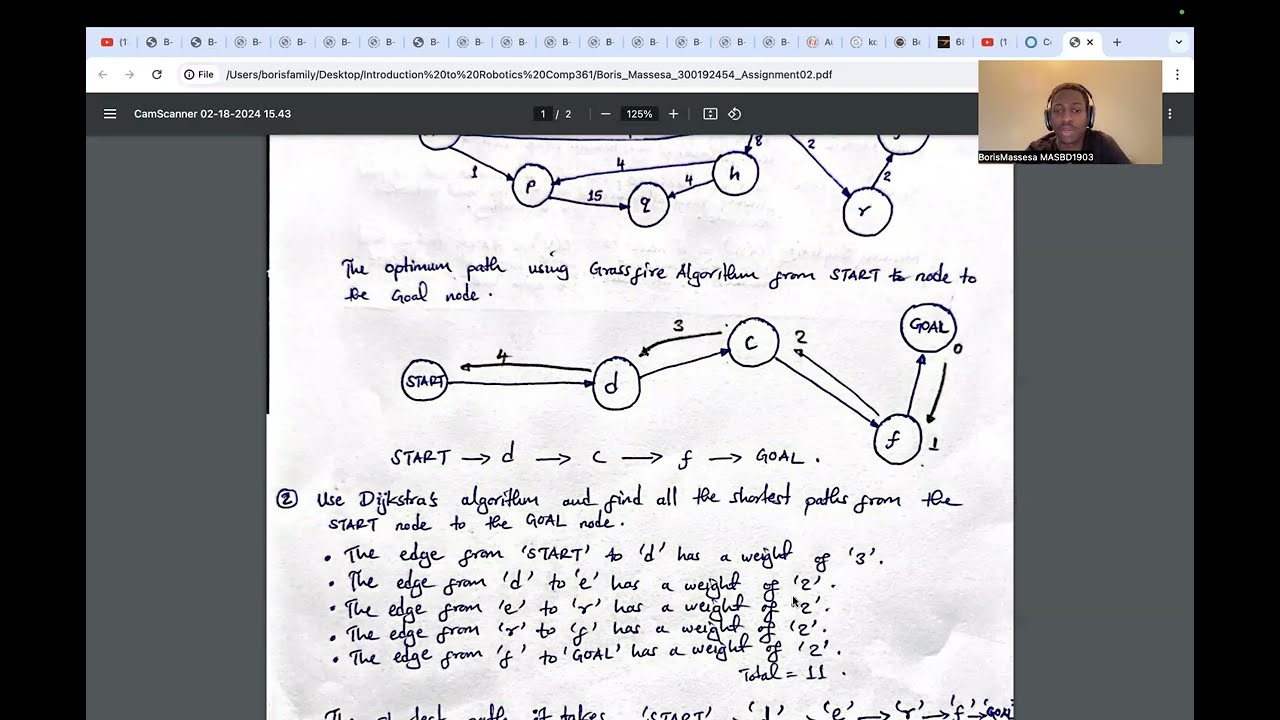 File /Users/borisfamily/Desktop/Introduction%20to%20Robotics%20Comp361/Boris_Massesa_300192454_Assignment02.pdf
CamScanner 02-18-2024 15.43
1 / 2 125%
BorisMassesa MASBD1903
8 2
1 4 4 h 2
p 15 q r
The optimum path using Grassfire Algorithm from START to node to
the Goal node.
GOAL
3 C 2 0
4
START d
f 1
START → d → c → f → GOAL.
② Use Dijkstra's algorithm and find all the shortest paths from the
START node to the GOAL node.
• The edge from 'START' to 'd' has a weight of '3'.
• The edge from 'd' to 'e' has a weight of '2'.
• The edge from 'e' to 'r' has a weight of '2'.
• The edge from 'r' to 'f' has a weight of '2'.
• The edge from 'f' to 'GOAL' has a weight of '2'.
Total = 11.
path it takes 'START' → 'd' → 'e' → 'r' → 'f' → 'GOAL'